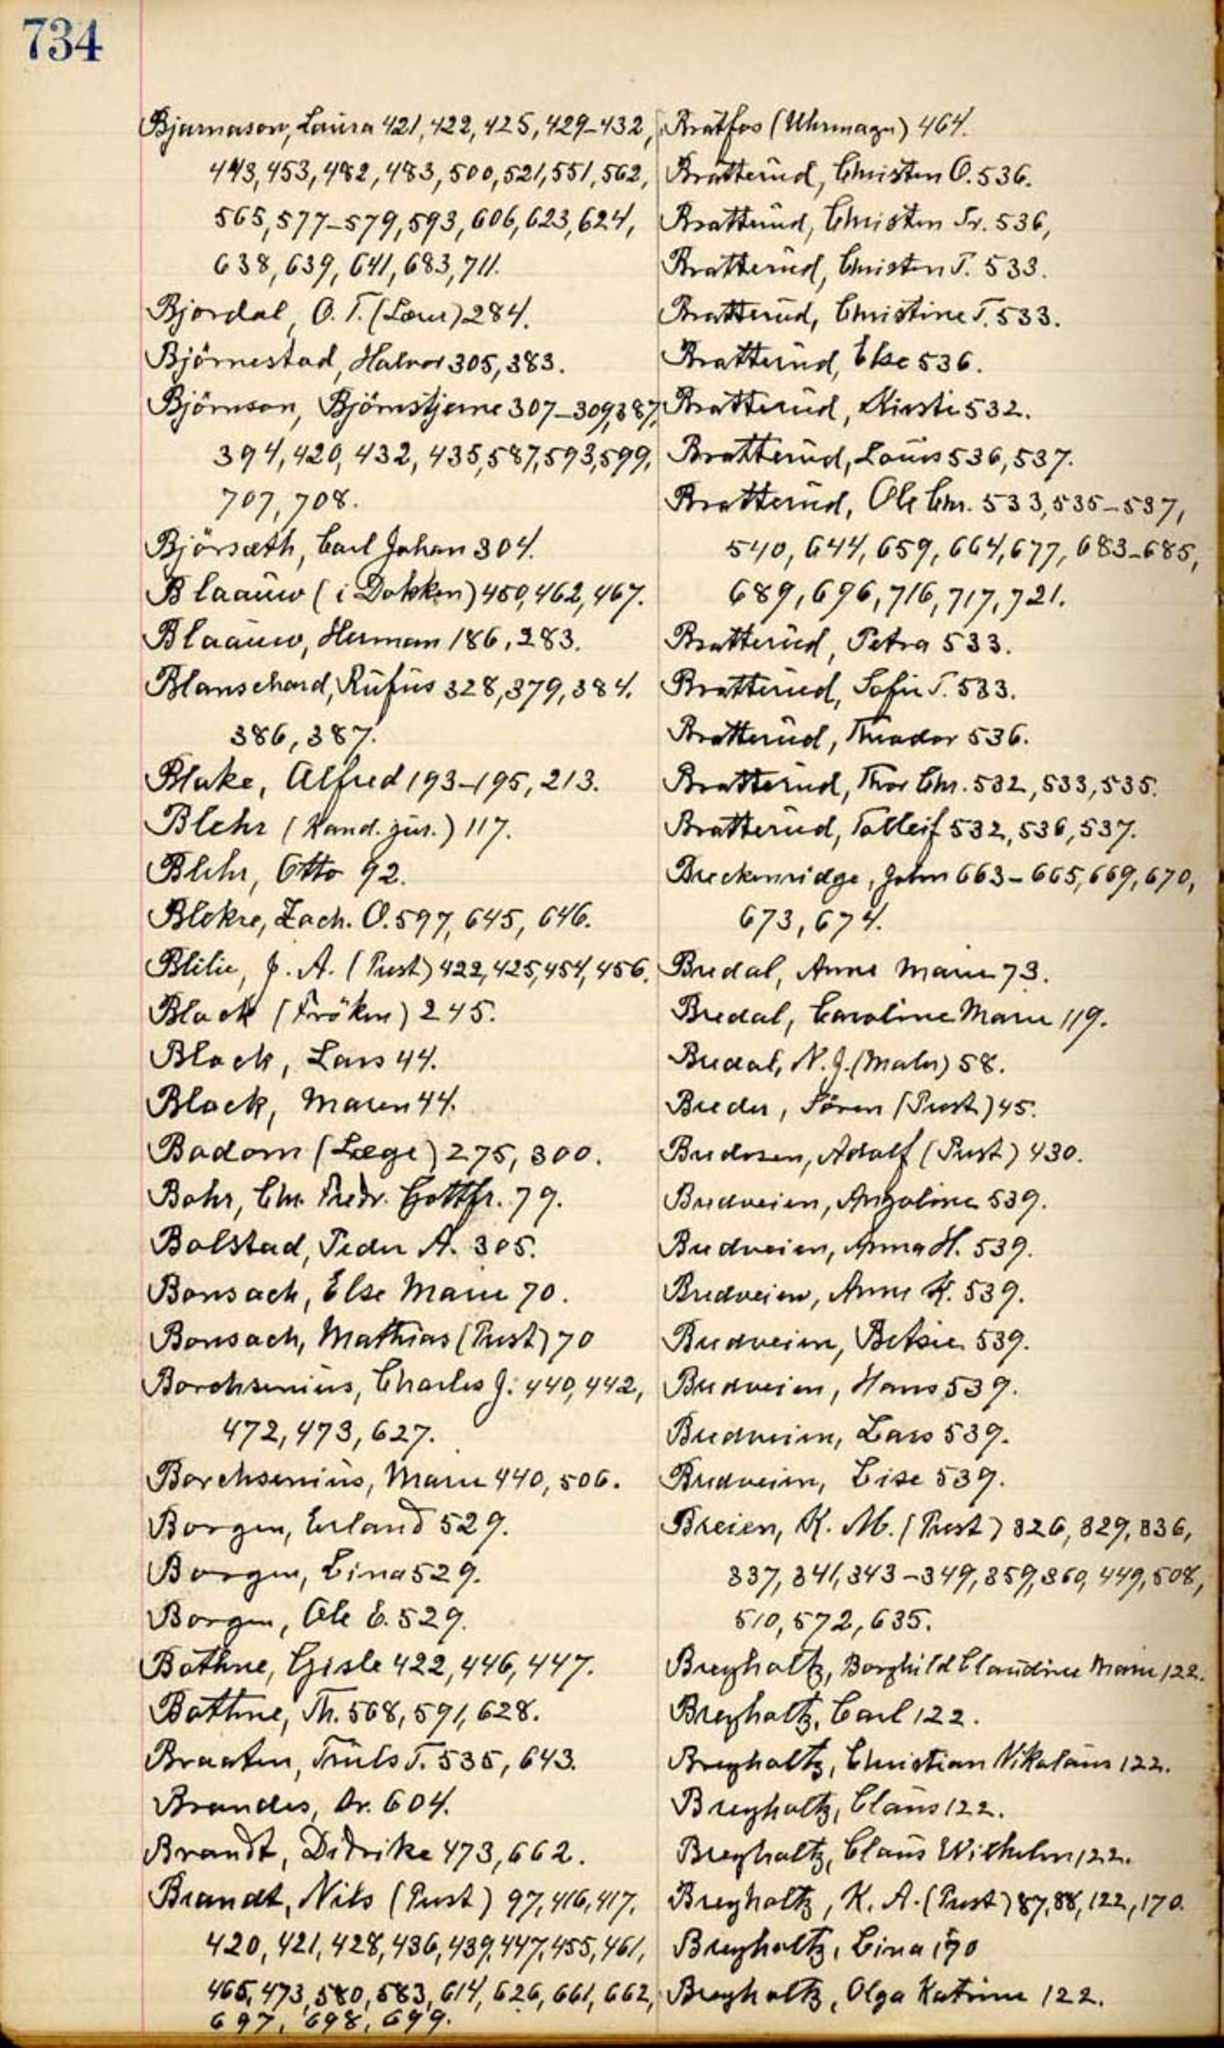 734
Bjarnason, Laura 421, 422, 425, 429-432,
443, 453, 482, 483, 500, 521, 551, 562,
565, 577-579, 593, 606, 623, 624,
638, 639, 641, 683, 711.
Bjordal, O. T. (Lærer) 284.
Björnestad, Halvor 305, 383.
Björnson, Björnstjerne 307-309, 387,
394, 420, 432, 435, 587, 593, 599,
707, 708.
Björsæth, Carl Johan 304.
Blaauw (i Dokken) 450, 462, 467.
Blaauw, Herman 186, 283.
Blanschard, Rufus 328, 379, 384.
386, 387.
Blake, Alfred 193-195, 213.
Blehr (Kand. jur.) 117.
Blehr, Otto 92.
Blekre, Zach. O. 597, 645, 646.
Blilie, J. A. (Prest) 422, 425, 454, 456.
Block (Fröken) 245.
Block, Lars 44.
Block, Maren 44.
Bodom (Læge) 275, 300.
Bohr, Chr. Fredr. Gottfr. 79.
Bolstad, Peder A. 305.
Bonsach, Else Marie 70.
Bonsach, Mathias (Prest) 70
Borchsenius, Charles J. 440, 442,
472, 473, 627.
Borchsenius, Marie 440, 506.
Borgen, Erland 529.
Borgen, Lina 529.
Borgen, Ole E. 529.
Bothne, Gisle 422, 446, 447.
Bothne, Th. 568, 591, 628.
Braaten, Truls T. 535, 643.
Brandes, Dr. 604.
Brandt, Didrike 473, 662.
Brandt, Nils (Prest) 97, 416, 417,
420, 421, 428, 436, 439, 447, 455, 461,
465, 473, 580, 583, 614, 626, 661, 662,
697, 698, 699.
Bratfos (Uhrmager) 464.
Bratterud, Christen O. 536.
Bratterud, Christen Tr. 536,
Bratterud, Christen T. 533.
Bratterud, Christine T. 533.
Bratterud, Else 536.
Bratterud, Kirsti 532.
Bratterud, Louis 536, 537.
Bratterud, Ole Chr. 533, 535-537,
540, 644, 659, 664, 677, 683-685,
689, 696, 716, 717, 721.
Bratterud, Petra 533.
Bratterud, Sofie T. 533.
Bratterud, Theodor 536.
Bratterud, Thor Chr. 532, 533, 535.
Bratterud, Tolleif 532, 536, 537.
Breckenridge, John 663-665, 669, 670,
673, 674.
Bredal, Anne Marie 73.
Bredal, Caroline Marie 119.
Bredal, N. J. (Maler) 58.
Breder, Sören (Prest) 45.
Bredesen, Adolf (Prest) 430.
Bredveien, Angoline 539.
Bredveien, Anna H. 539.
Bredveien, Anne K. 539.
Bredveien, Betsie 539.
Bredveien, Hans 539.
Bredveien, Lars 539.
Bredveien, Lise 539.
Breien, K. M. (Prest) 326, 329, 336,
337, 341, 343-349, 359, 360, 449, 508,
510, 572, 635.
Breyholtz, Borghild Claudine Marie 122.
Breyholtz, Carl 122.
Breyholtz, Christian Nikolaus 122.
Breyholtz, Claus 122.
Breyholtz, Claus Wilhelm 122.
Breyholtz, K. A. (Prest) 87, 88, 122, 170.
Breyholtz, Lina 170
Breyholtz, Olga Katrine 122.